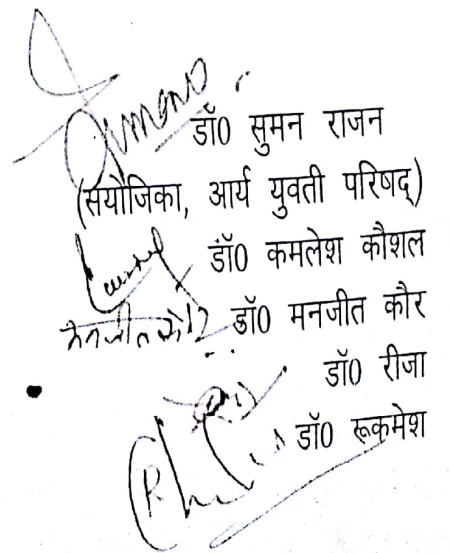 डॉ0 सुमन राजन
(सयोंजिका, आर्य युवती परिषद्)
डॉ0 कमलेश कौशल
मनजीत कौर डॉ0 मनजीत कौर
डॉ0 रीजा
डॉ0 रूकमेश